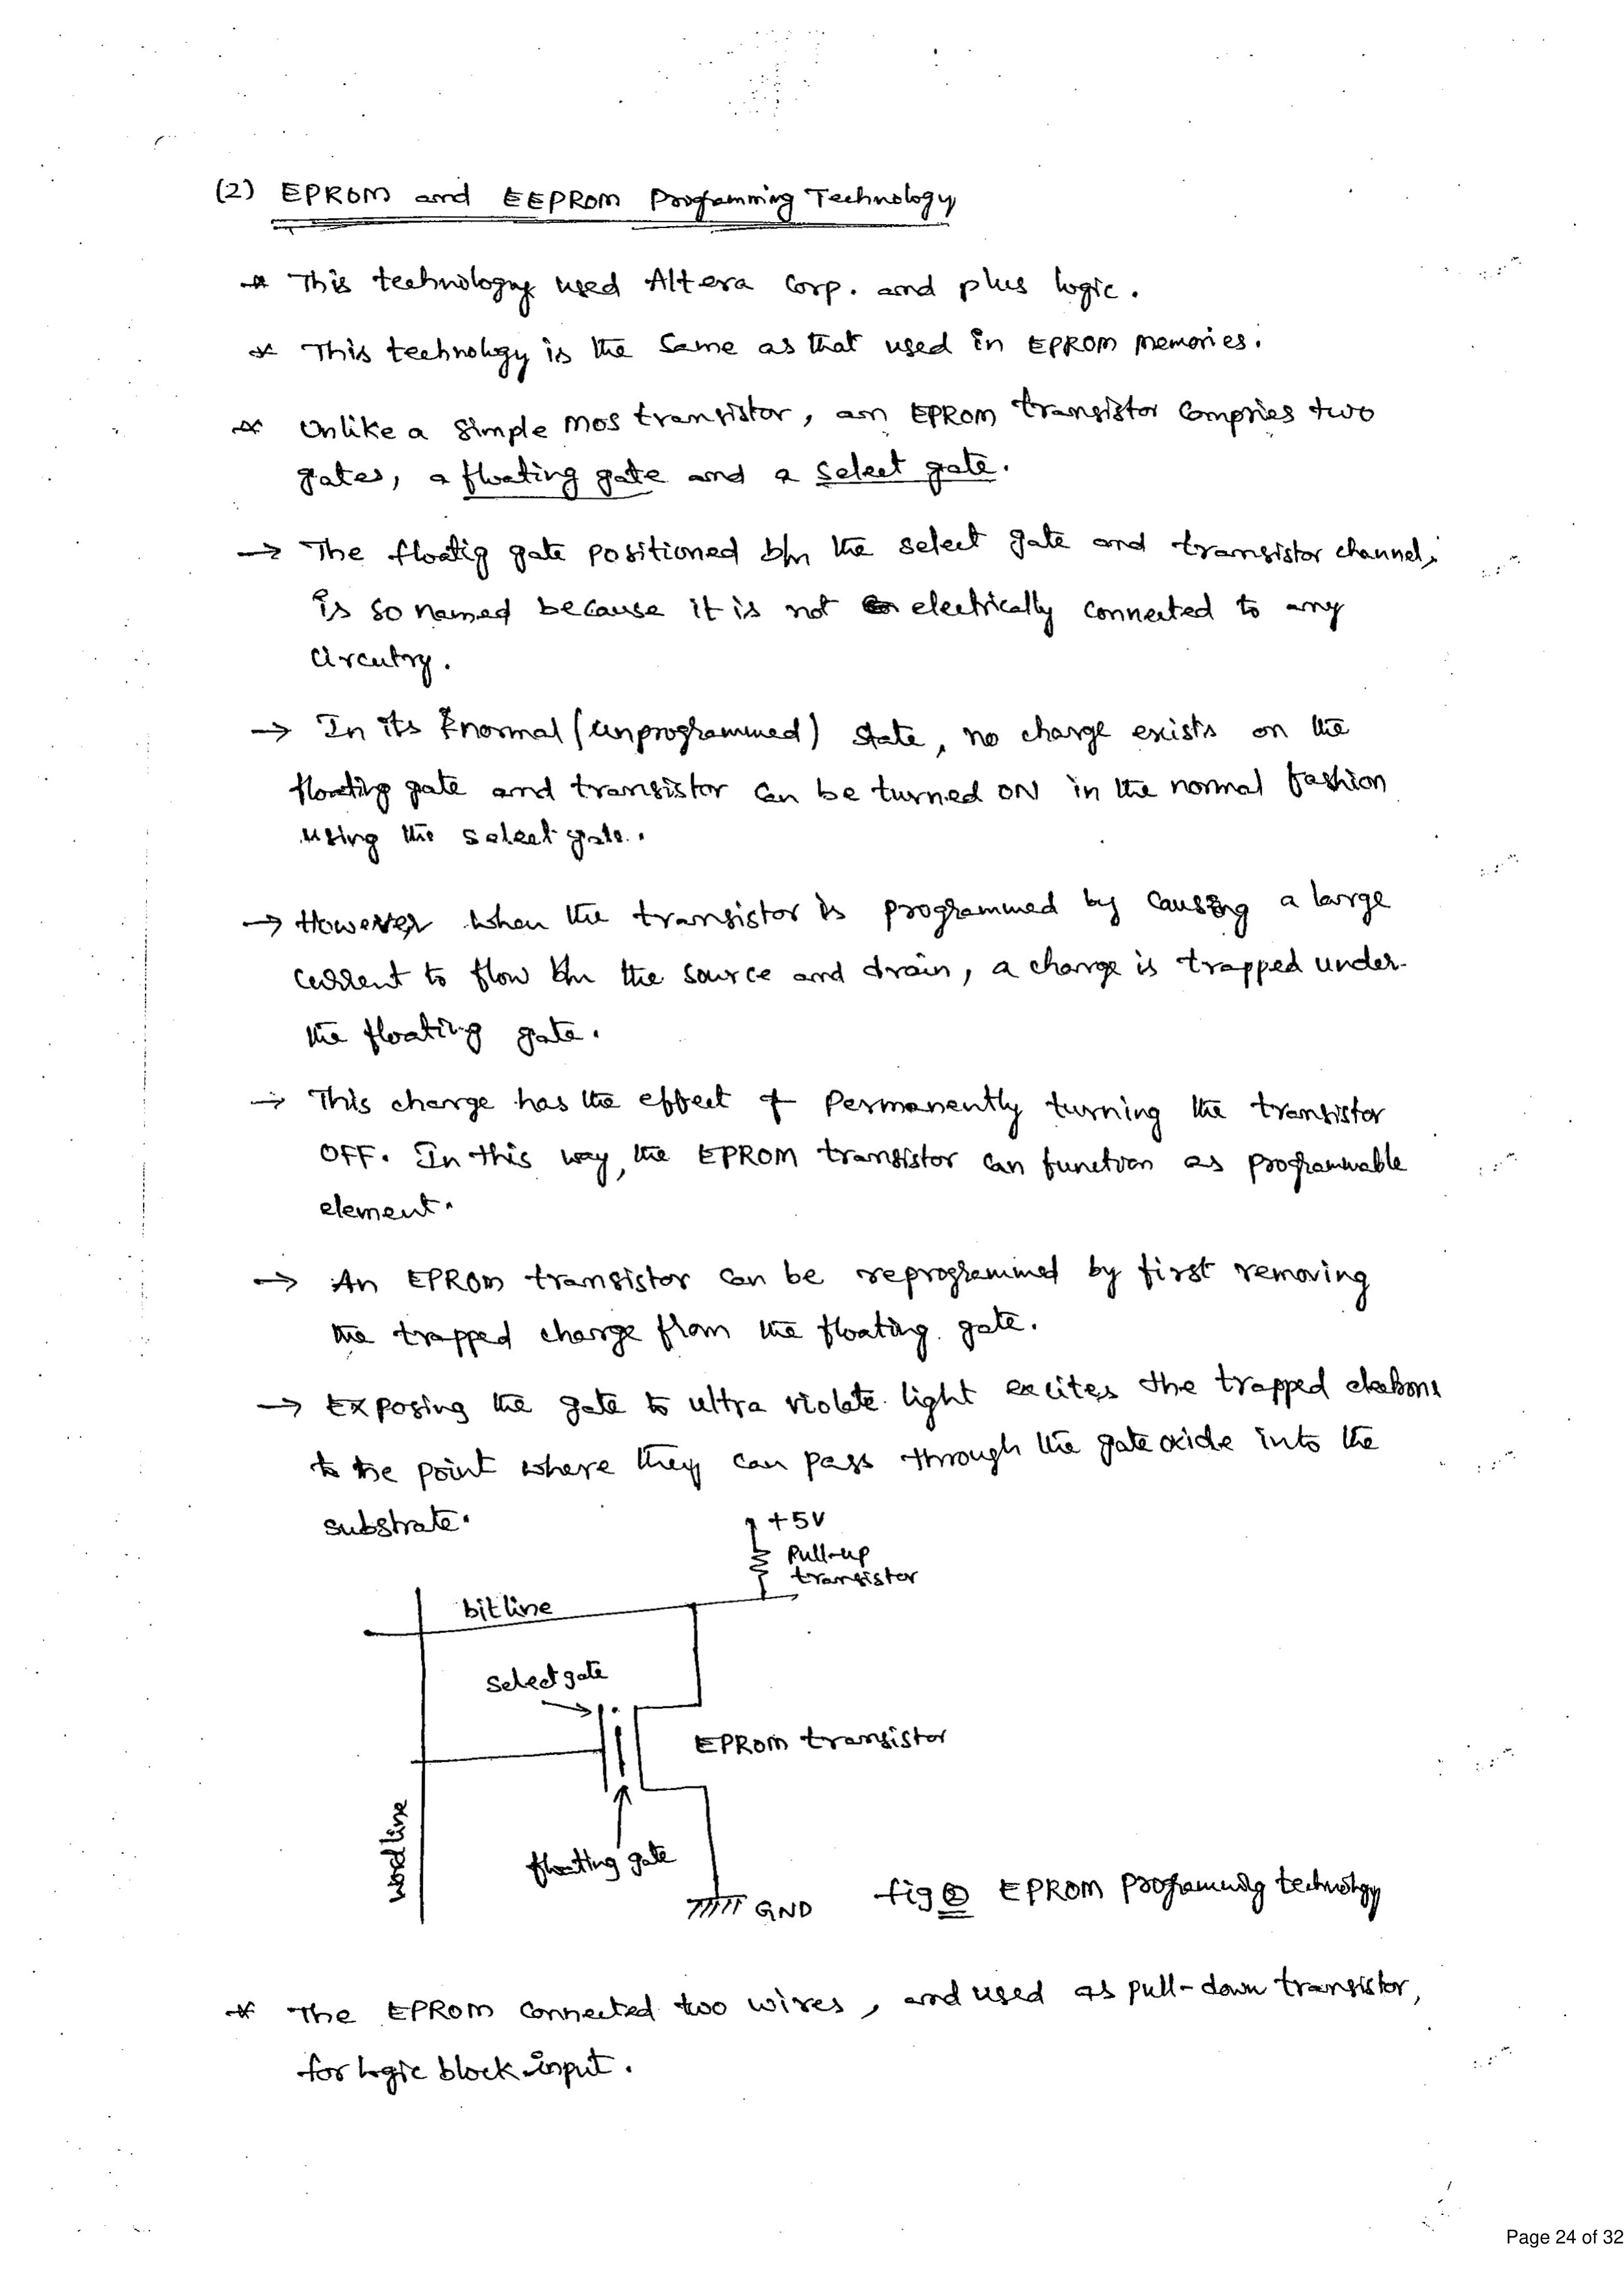 (2) EPROM and EEPROM Programming Technology
* This technology used Altera Corp. and plus logic.
* This technology is the same as that used in EPROM memories.
* Unlike a simple MOS transistor, an EPROM transistor compries two
gates, a floating gate and a select gate.
→ The floatig gate positioned b/n the select gate and transistor channel,
is so named because it is not electrically connected to any
circutry.
→ In its normal (unprogrammed) state, no charge exists on the
floating gate and transistor can be turned ON in the normal fashion
using the select gate.
→ However when the transistor is programmed by causing a large
current to flow b/n the source and drain, a charge is trapped under
the floating gate.
→ This charge has the effect of permanently turning the transistor
OFF. In this way, the EPROM transistor can function as programmable
element.
→ An EPROM transistor can be reprogrammed by first removing
the trapped charge from the floating gate.
→ Exposing the gate to ultra violate light excites the trapped electrons
to the point where they can pass through the gate oxide into the
substrate.
+5V
Pull-up
transistor
bitline
Select gate
EPROM transistor
word line
floating gate
GND
fig ② EPROM programming technology
* The EPROM connected two wires, and used as pull-down transistor,
for logic block input.
Page 24 of 32